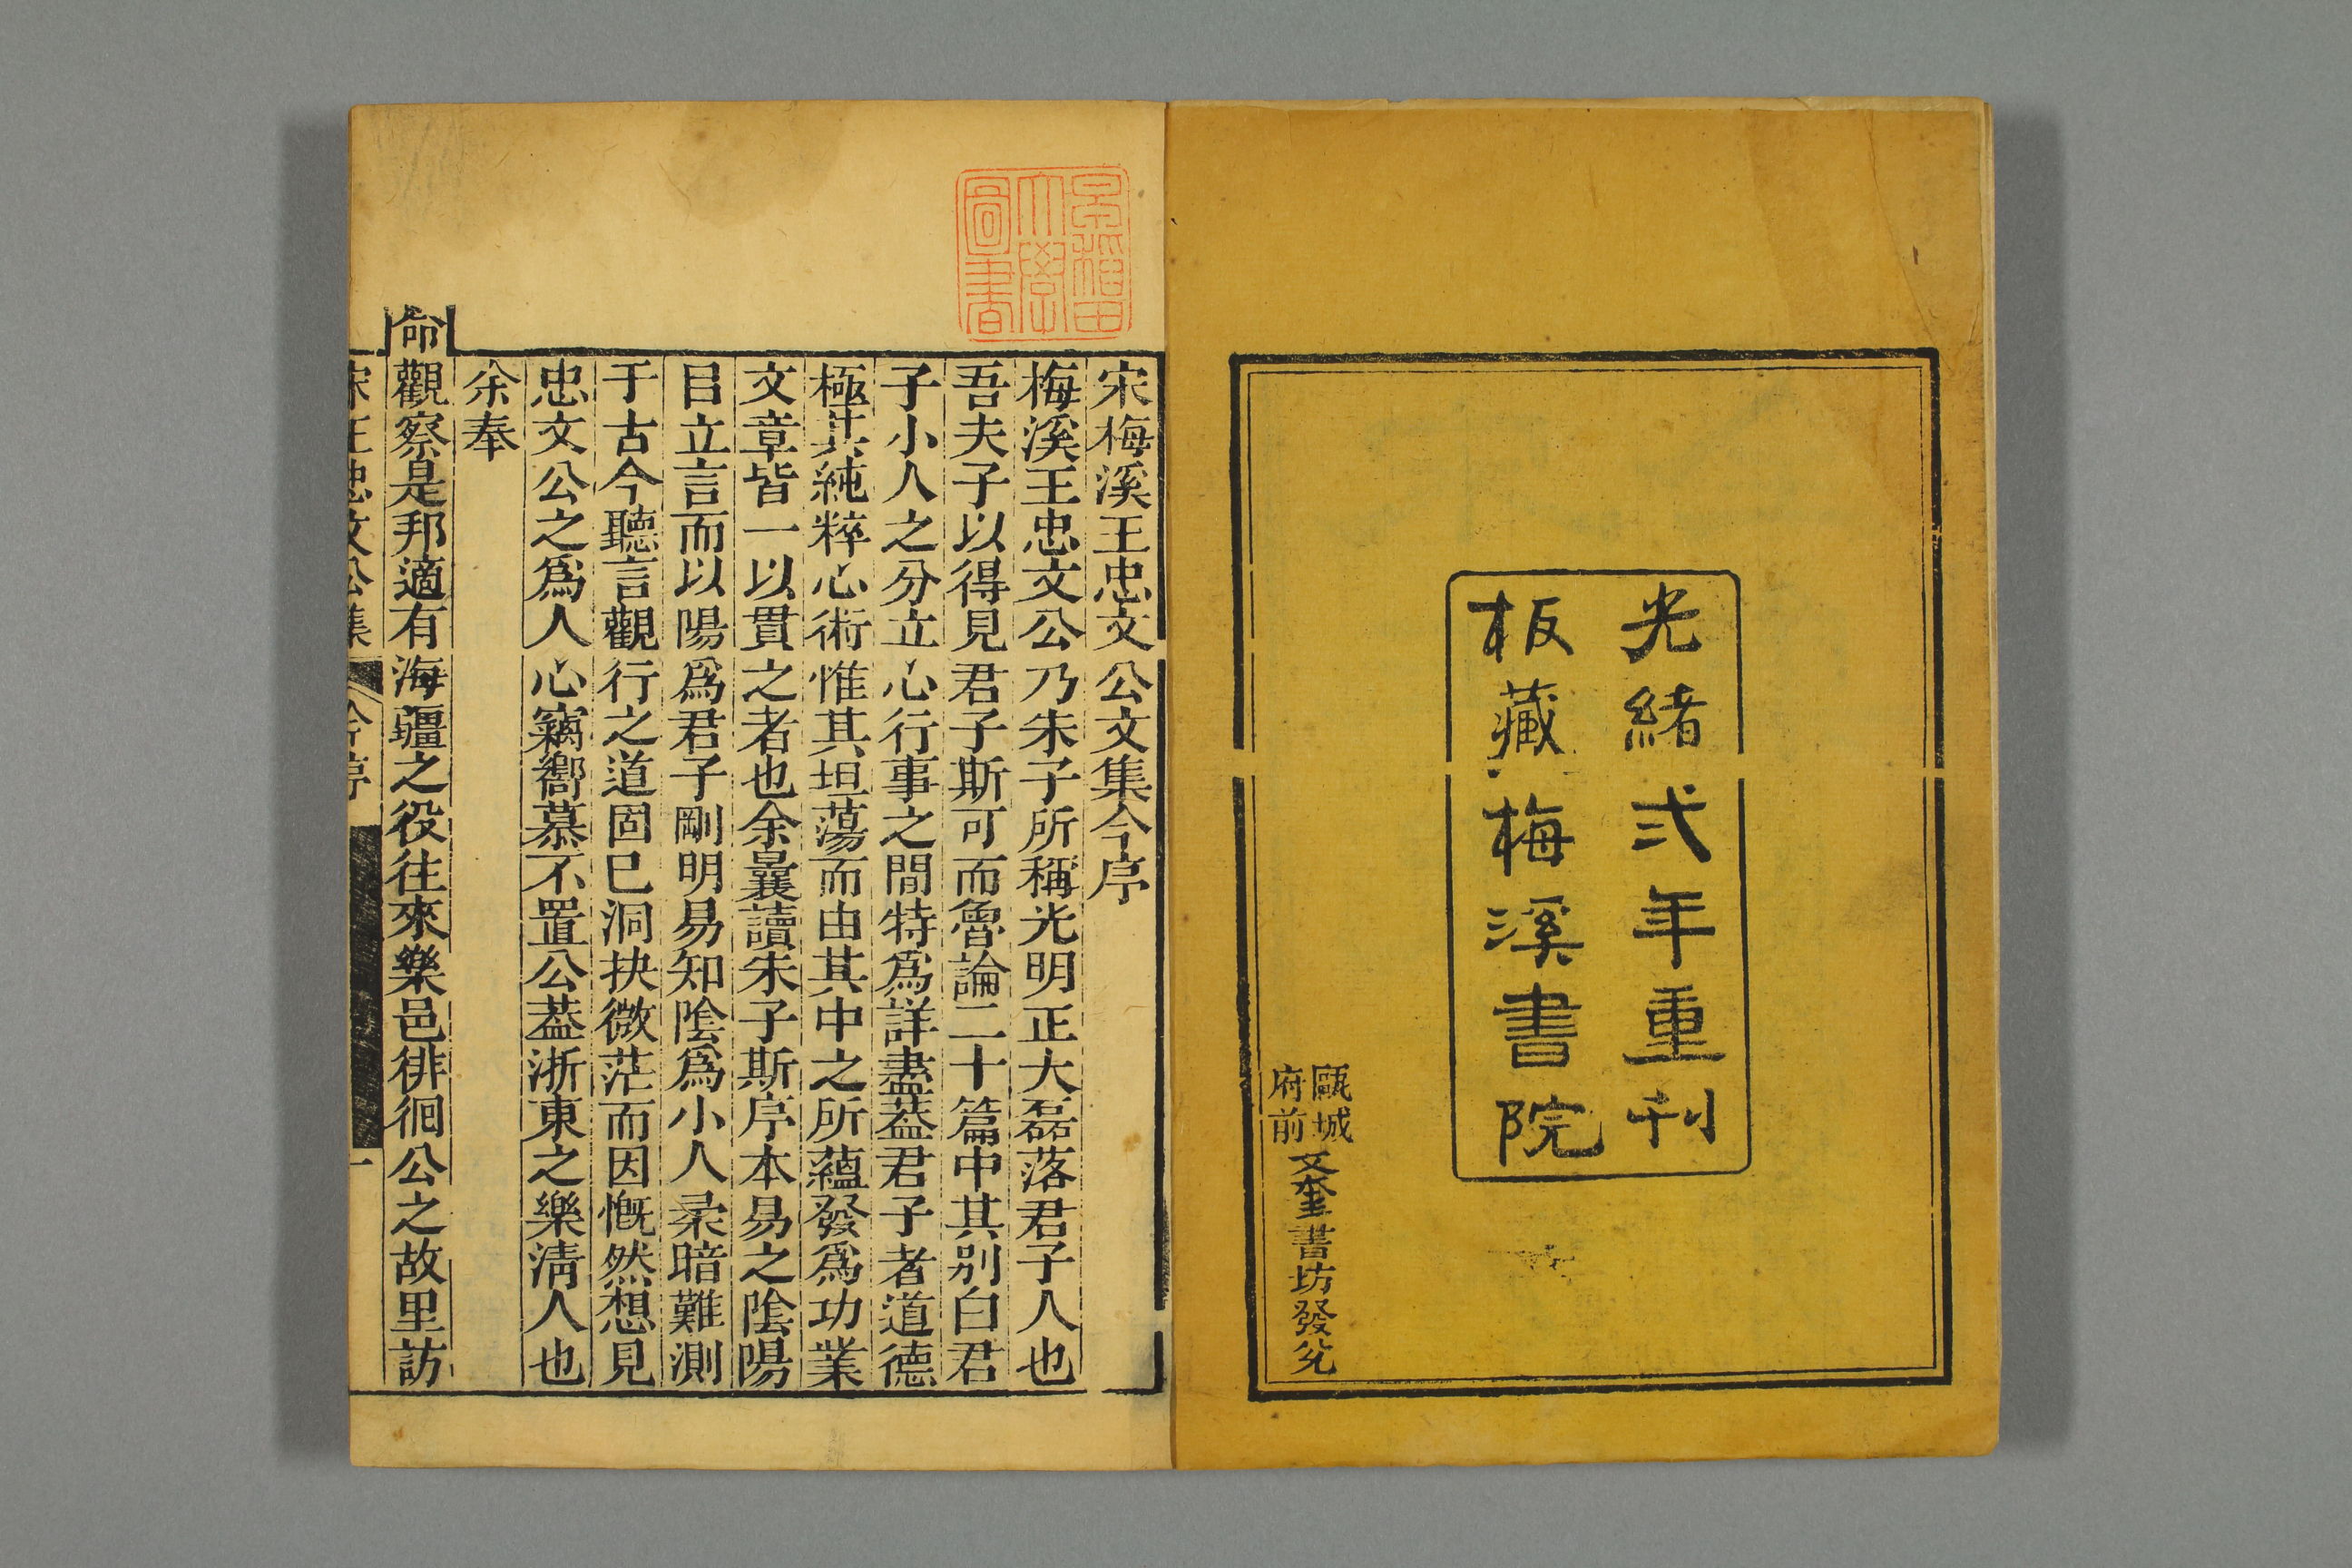 光緒弍年重刊
板藏梅溪書院
甌城
府前
文奎書坊發兌
早稻田
大學
圖書
宋梅溪王忠文公文集今序
梅溪王忠文公乃朱子所稱光明正大磊落君子人也
吾夫子以得見君子斯可而魯論二十篇中其别白君
子小人之分立心行事之間特爲詳盡葢君子者道德
極其純粹心術惟其坦蕩而由其中之所蘊發爲功業
文章皆一以貫之者也余曩讀朱子斯序本易之陰陽
目立言而以陽爲君子剛明易知陰爲小人柔暗難測
于古今聽言觀行之道固已洞抉微茫而因慨然想見
忠文公之爲人心竊嚮慕不置公葢浙東之樂淸人也
余奉
命觀察是邦適有海疆之役往來樂邑徘徊公之故里訪
宋王忠文公集 今序 一